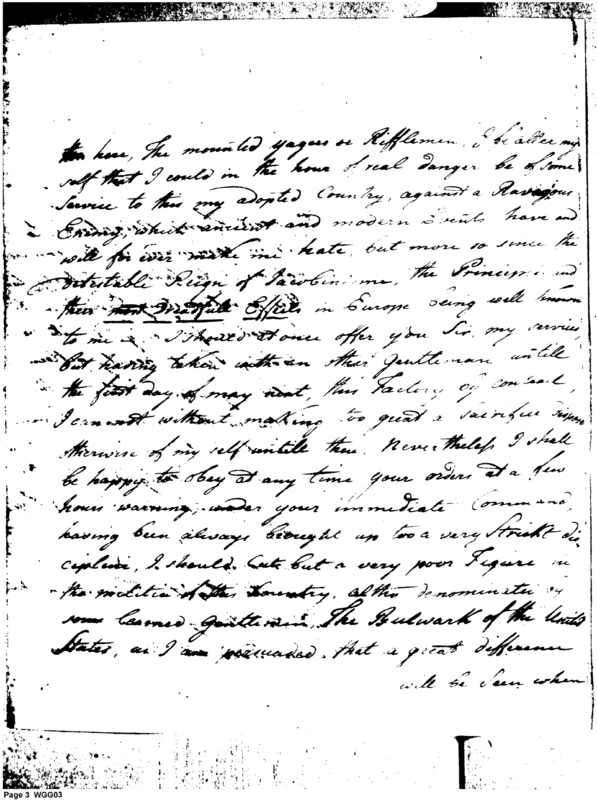 here, The mounted yagers or Rifflemen. I be
self that I could in the hour of real danger be of some
Service to this my adopted Country, against a Ravagious
Enemy, which ancient and modern Events have and
will for ever make me hate, but more so since the
detestable Reign of Jacobinisme, the Principes and
their most Dreadfull Effects in Europe being well known
to me. I should at once offer you Sir, my services,
but having taken with an other gentleman untill
the first day of may next, this Factory by contract,
I can not without making too great a sacrifice dispose
otherwise of my self untill then. Nevertheless I shall
be happy to obey at any time your orders at a few
hours warning under your immediate Command,
having been always brought up too a very Strickt dis-
cipline, I should Cutt but a very poor Figure in
the militia of this Country, altho denominated by
some learned gentlemen, The Bulwark of the United
States, as I am persuaded that a great difference
will be seen when
Page 3 WGG03